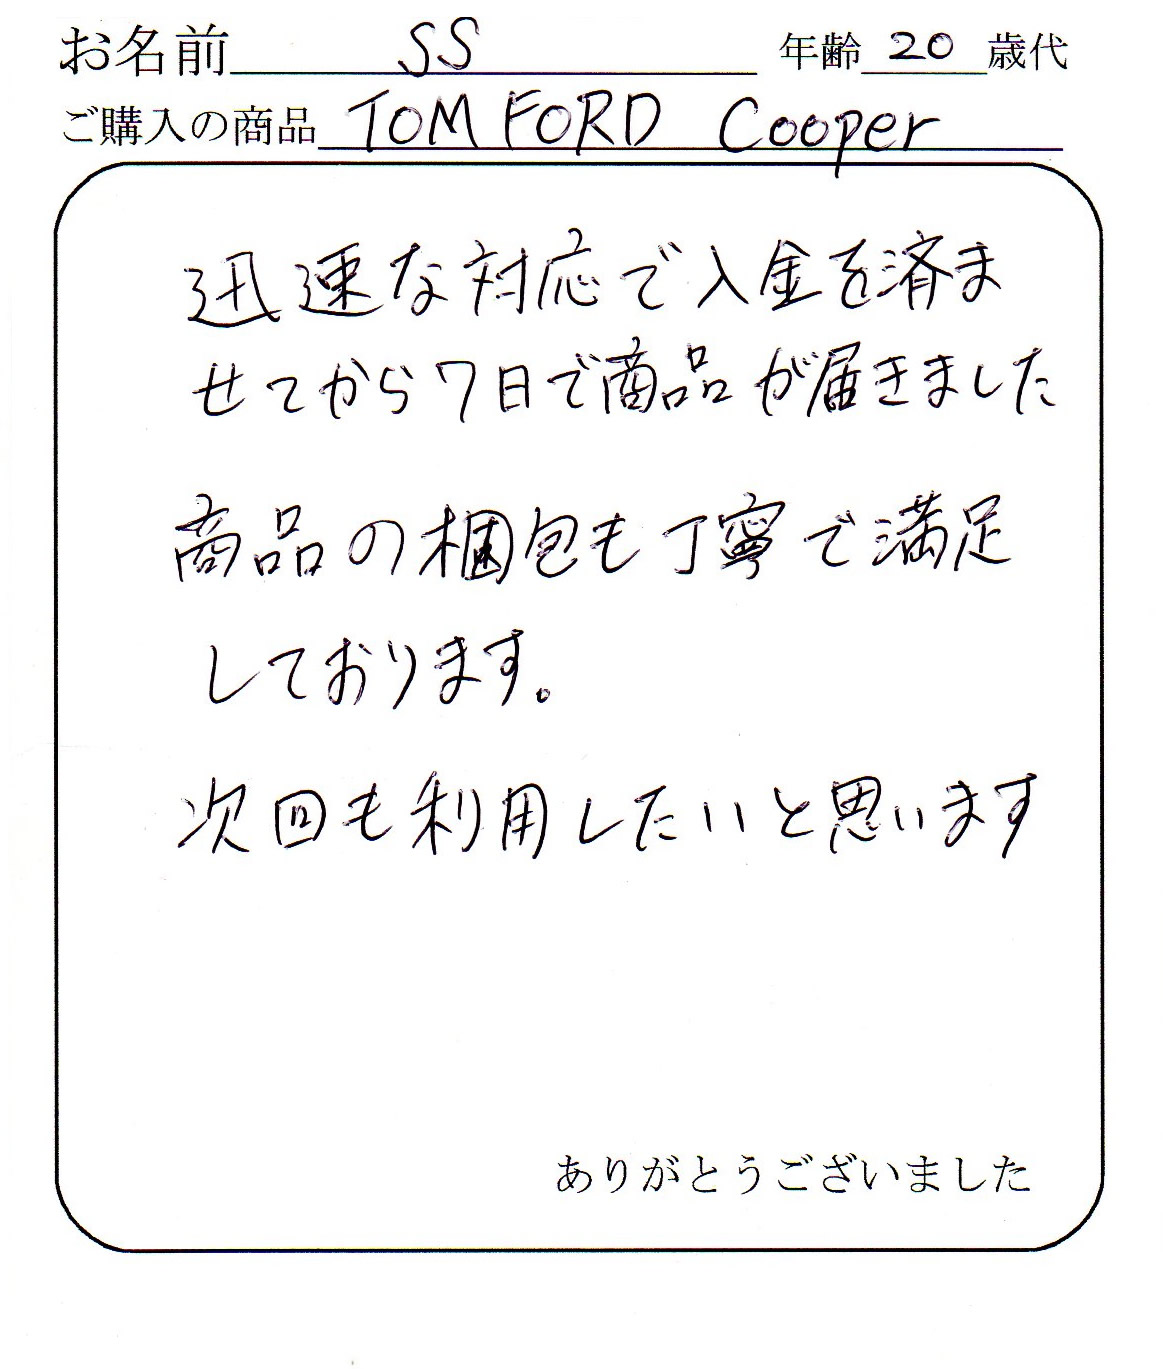 お名前 SS 年齢 20 歳代
ご購入の商品 TOM FORD Cooper
迅速な対応で入金を済ま
せてから7日で商品が届きました
商品の梱包も丁寧で満足
しております。
次回も利用したいと思います
ありがとうございました